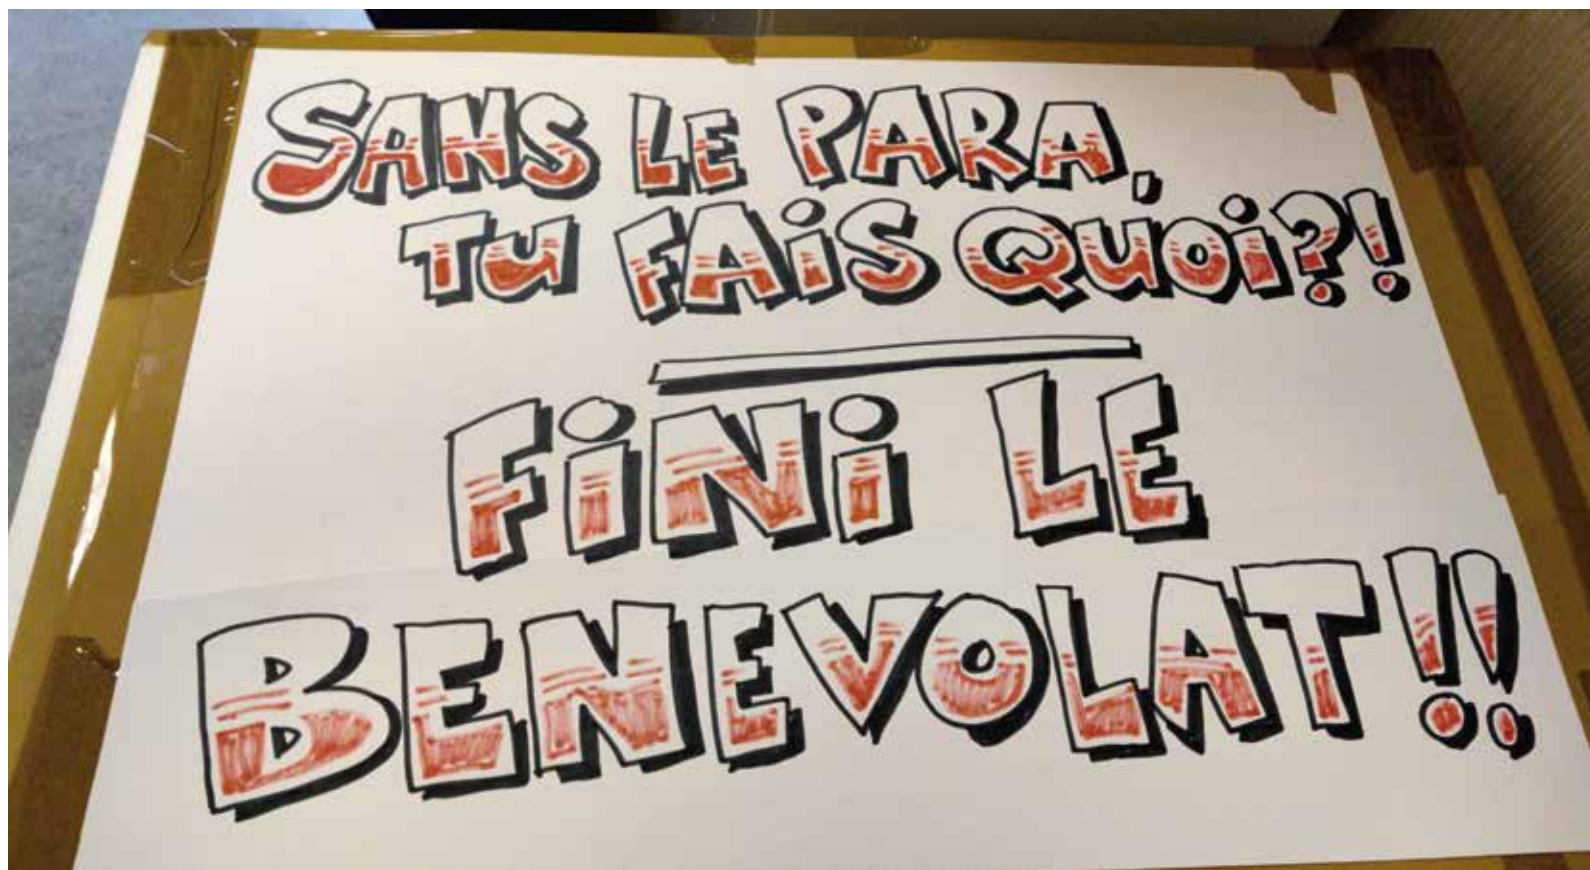 SANS LE PARA,
TU FAiS QUOi?!
FiNi LE
BENEVOLAT!!